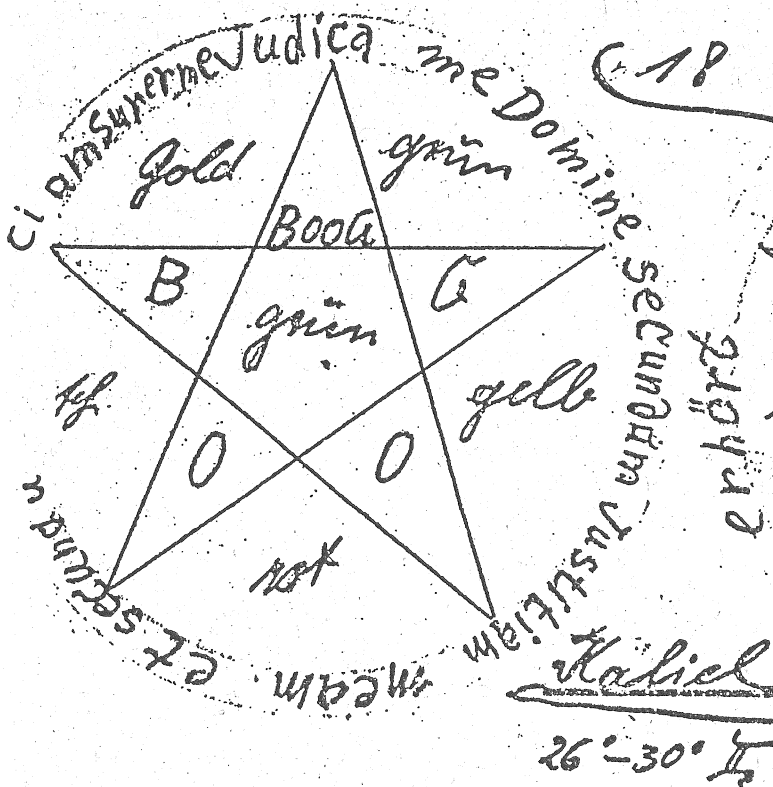 18
Judica me Domine secundäm Justitiam meam. et secundu
ci am superme
Gold
grün
BooG
B
G
grün
gelb
O
O
rot
Kaliel
26°-30° ♊